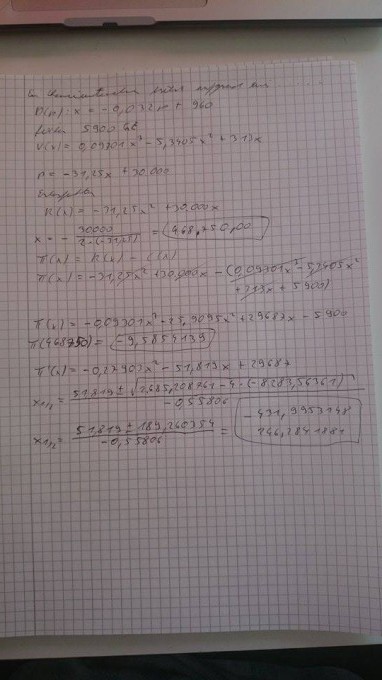 D(p): x = -0,032p + 960
5900
V(x) = 0,09301x³ - 5,3405x² + 313x
p = -31,25x + 30.000
R(x) = -31,25x² + 30.000x
x = - 30000 / 2·(-31,25) = 468,750,00
π(x) = R(x) - C(x)
π(x) = -31,25x² + 30,000x - (0,09301x³ - 5,3405x²
+ 313x + 5900)
π(x) = -0,09301x³ - 25,9095x² + 29687x - 5900
π(468750) = -9,5854139
π'(x) = -0,27903x² - 51,819x + 29687
x₁/₂ = 51,819 ± √2,685,208761 - 4·(-8283,56361) / -0,55806
x₁/₂ = 51,819 ± 189,260354 / -0,55806 = -431,9953148
246,2841881